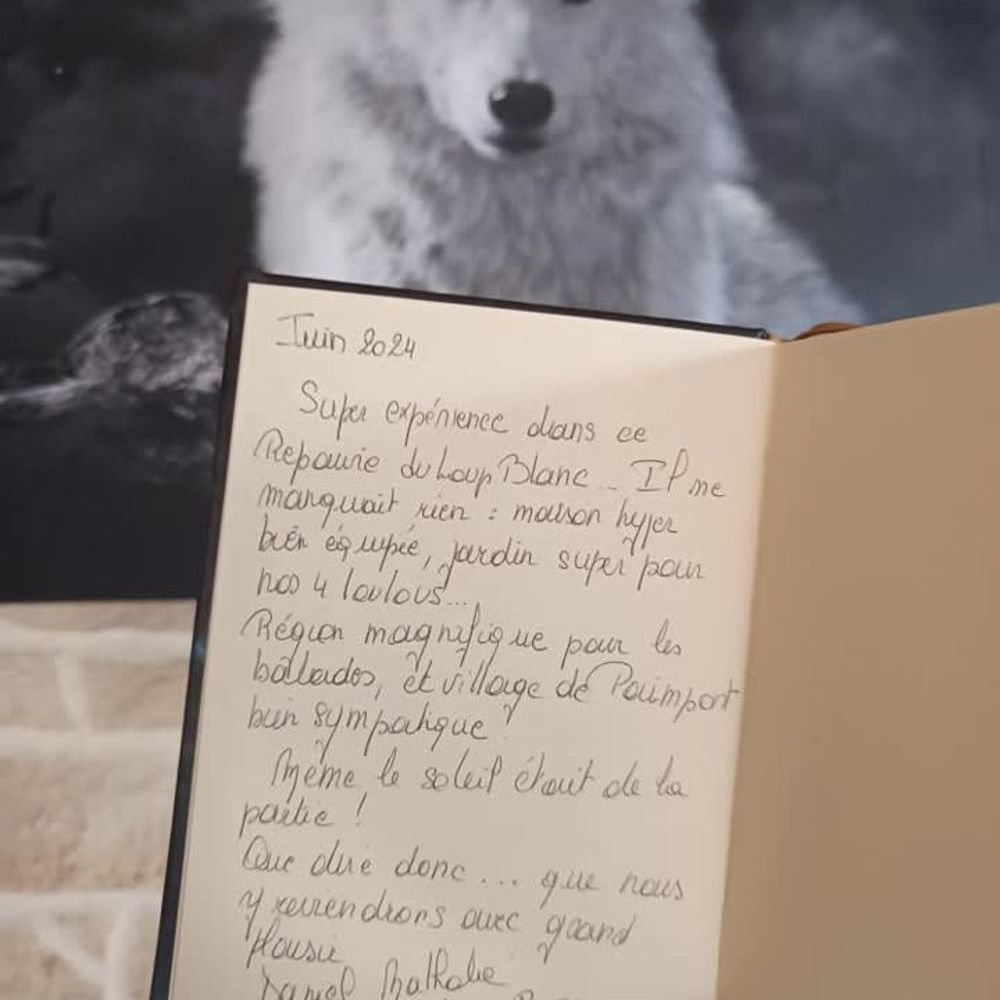 Juin 2024
Super expérience dans ce
Repaire du Loup Blanc... Il ne
manquait rien : maison hyper
bien équipée, jardin super pour
nos 4 loulous...
Région magnifique pour les
ballades, et village de Paimpont
bien sympatique !
Même le soleil était de la
partie !
Que dire donc... que nous
y reviendrons avec grand
plaisir
Daniel Nathalie